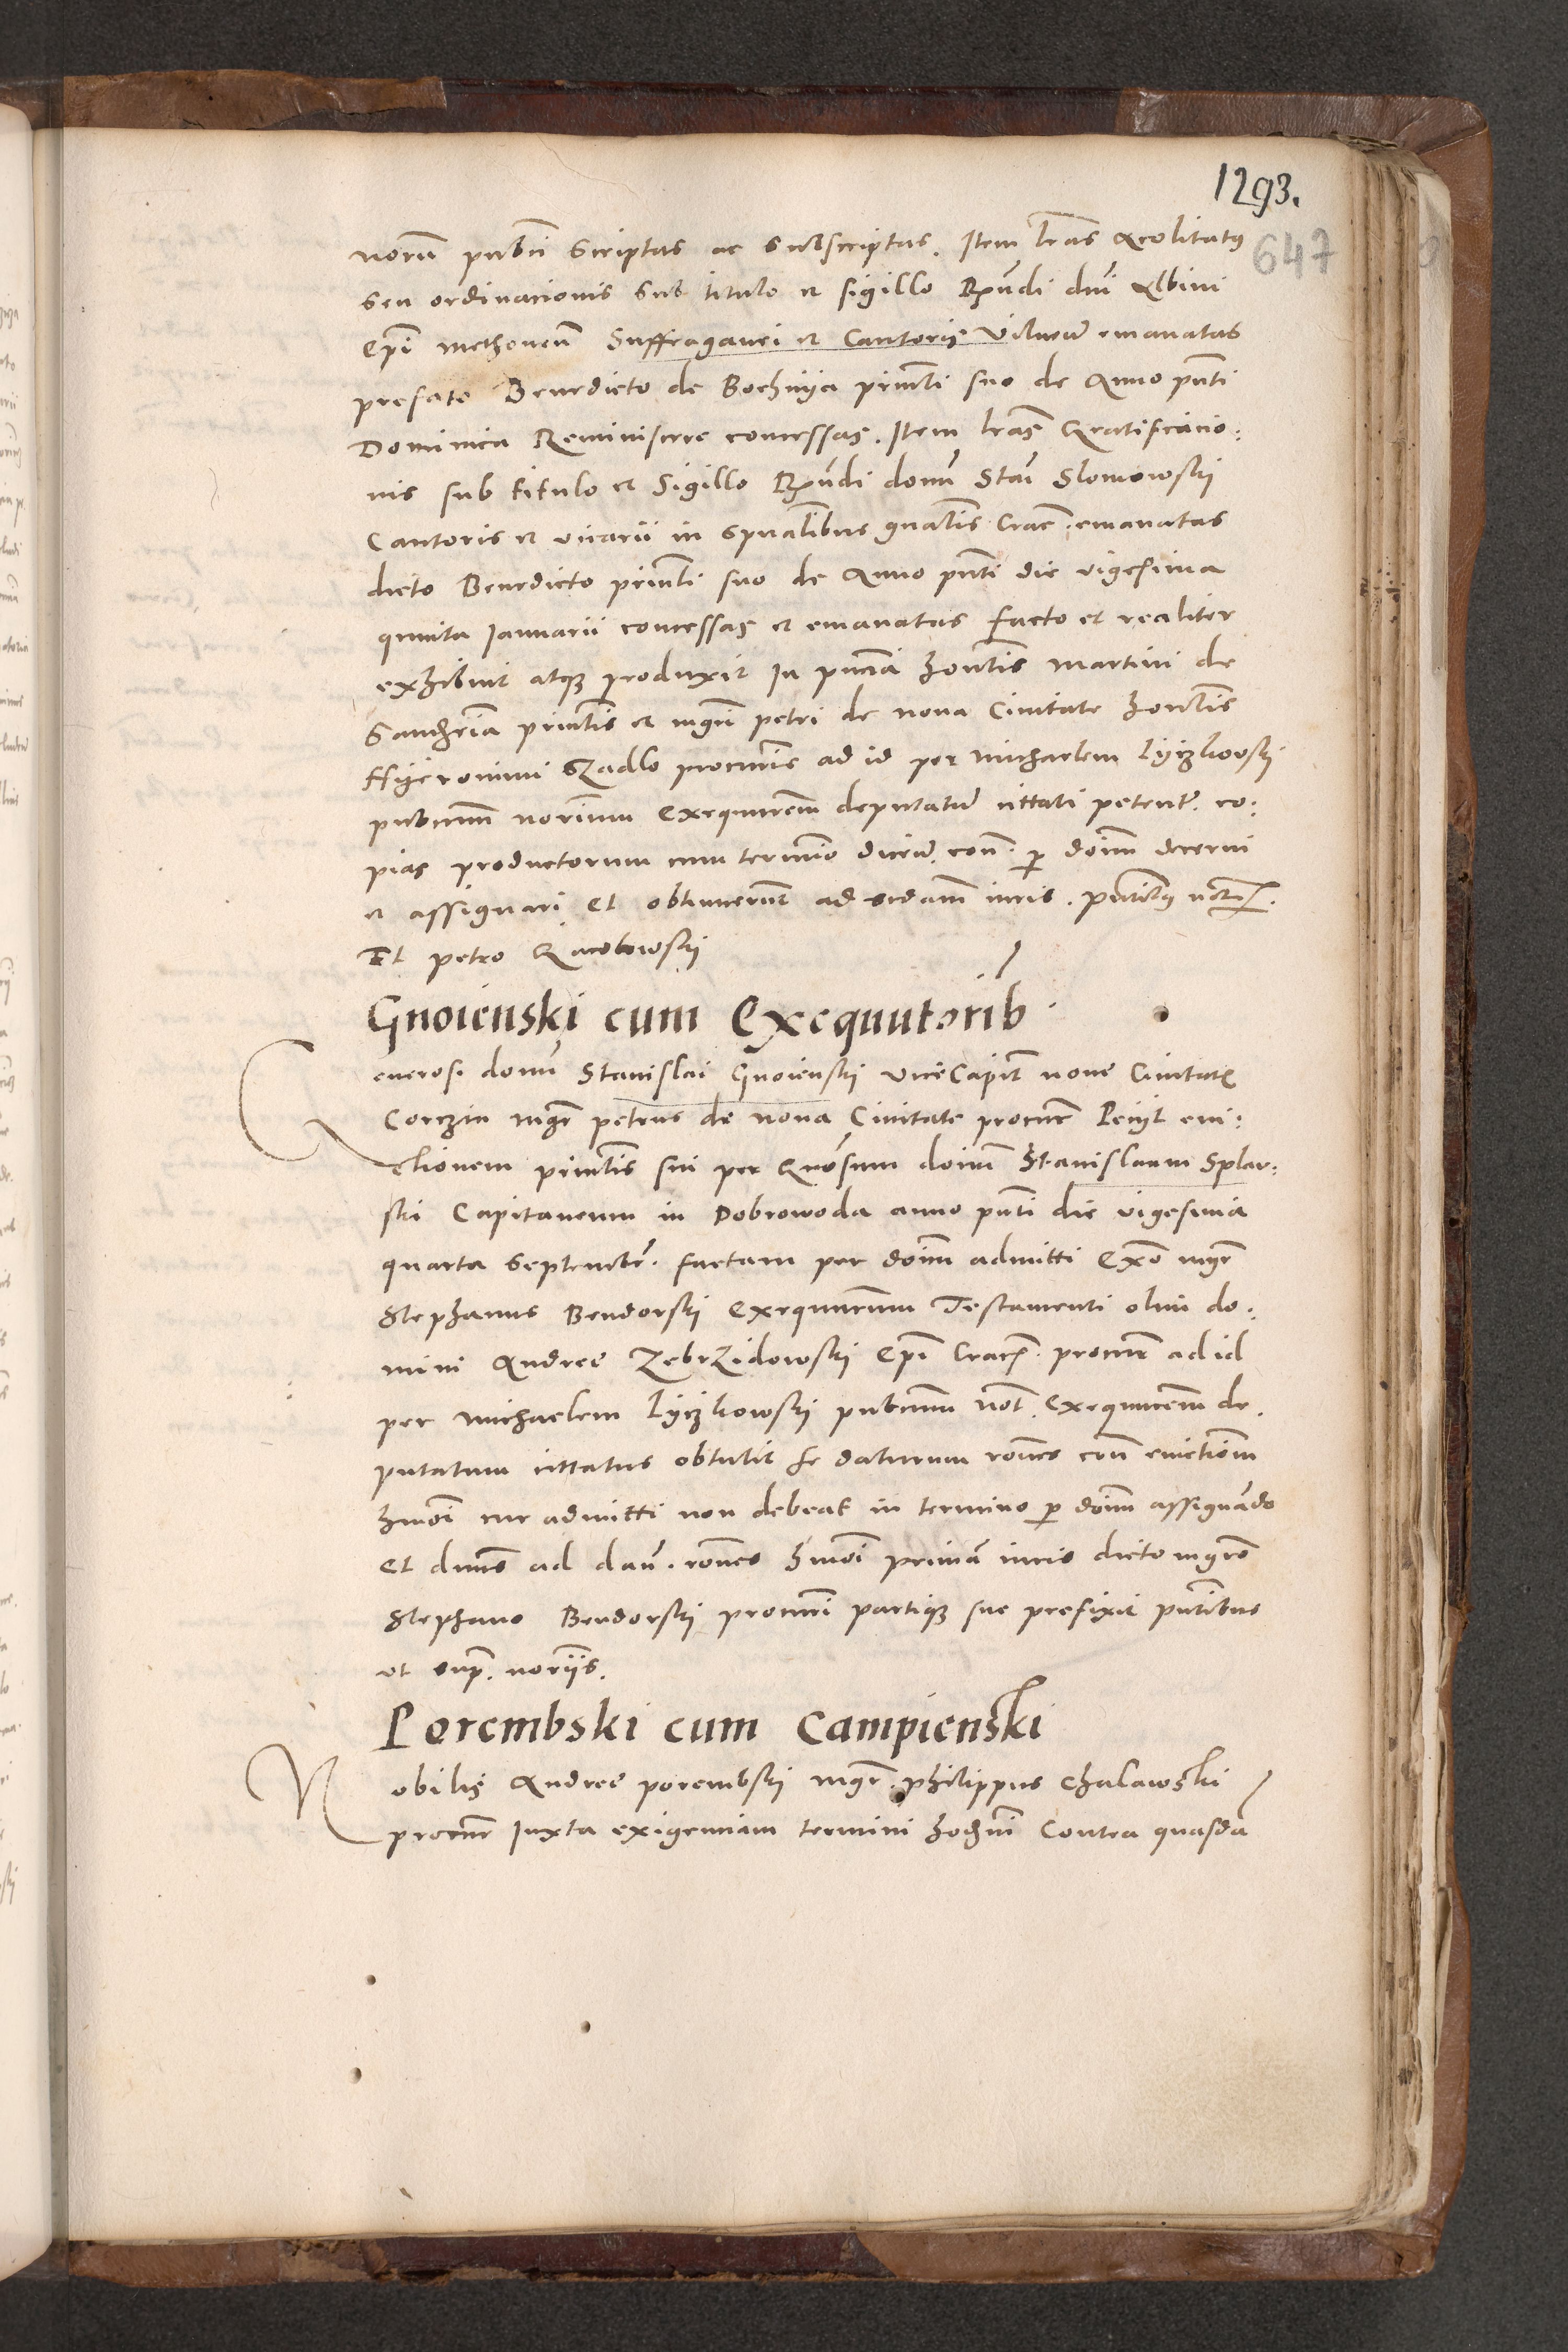 1293.
647
norum publici scriptas ac subscriptas. Item lras Acolitatus
seu ordinacionis sub titulo et sigillo Rendi dni Albini
Epi methonen Suffraganei et Cantoris Vilnen emanatas
prefato Benedicto de Bochnija prinlti suo de Anno pnti
Dominica Reminiscere concessas. Item lras Gratificacio:
nis sub titulo et Sigillo Rendi domi Stai Slomowskij
Cantoris et vicarii in spualibus gnalis Crac. emanatas
dicto Benedicto prinlti suo de Anno pnti die vigesima
quinta Ianuarii concessas et emanatas facto et realiter
exhibuit atque produxit In pncia honlis Martini de
principalis et mgri petri de nova Civitate honlis
Hyeronimi Szadlo procuris ad id per Michaelem Lyczkowskij
pubcumm norium Exequutorem deputatum cittati petentium. co:
pias productorum cum termino dicendum contra. p doim decerni
et assignari et obtinuerunt ad secdam iuris. pntibus
Et petro Jacobowskij
Gnoienski cum Exequutorib
Generosi domi Stanislai Gnoienskij ViceCapit nove Civitatis
Corczin mgr petrus de nova Civitate procur Pecijt evi:
ctionem prinlis sui per Grosum doim Stanislaum Splaw:
ski Capitaneum in Dobrowoda anno pnti die vigesima
quarta Septembr. factam per doim admitti Exo mgr
Stephanus Bendorskij Exequutorum Testamenti olim do:
mini Andree Zebrzidowskij Epi Crac. procur ad id
per Michaelem Lyczkowskij pubcumm Not. Exequutorem de.
putatum cittatus obtulit se daturum rones ctra evictionem
hmoi cur admitti non debeat in termino p doim assignando
Et dnus ad dan. rones hmoi primam iuris dicto mgro
Stephano Bendorskij procuri partique sue prefixit pntibus
ut supra. noriis.
Porembski cum Campienski
Nobilis Andree porembskij mgr. Philippus Chalawski
procur Iuxta exigenciam termini hodierni Contra quasda